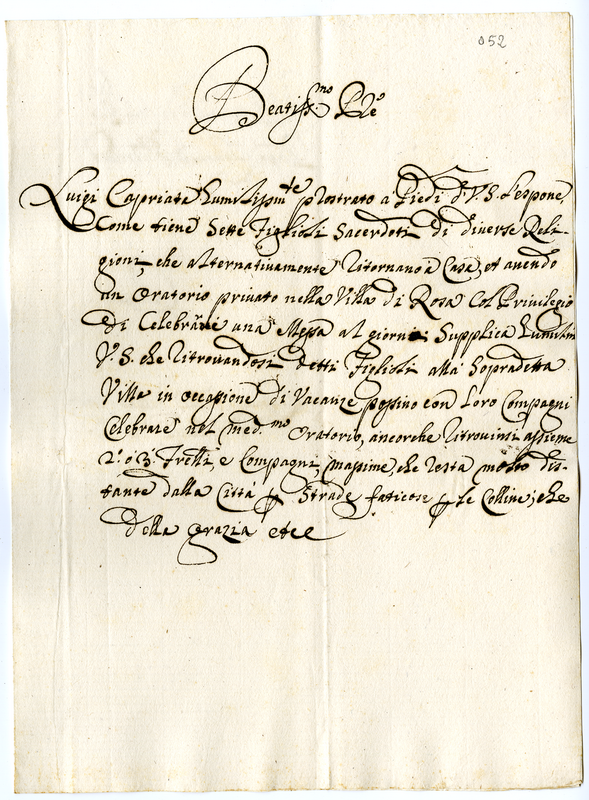 052
Beatiss.mo P.re
Luigi Capriata humilissim.te prostrato a Piedi di V. S. l'espone,
Come tiene Sette figlioli Sacerdoti di diverse Reli-
gioni, che alternativamente ritornano à Casa, et avendo
un Oratorio privato nella Villa di Rosa Col Privilegio
di Celebrare una Messa al giorno: Supplica humilm
V. S. che ritrovandosi detti figlioli alla Sopradetta
Villa in occassione di Vacanze possino con loro Compagni
Celebrare nel med.mo Oratorio, ancorche ritrovinsi assieme
2. ò 3. Frelli, e Compagni, massime, che resta molto dis-
tante dalla Città, p Strade faticose p le Colline; che
della grazia etc